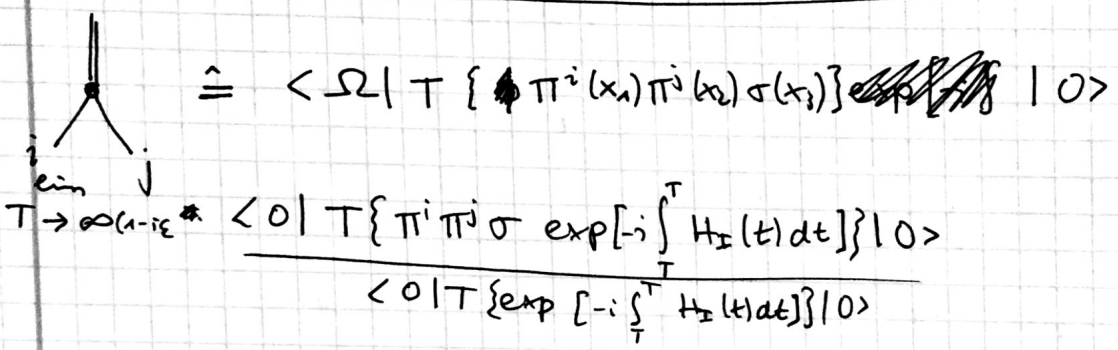 ≙ <Ω| T { πⁱ(x₁) πʲ(x₂) σ(x₃)} |0>
i j
lim T→∞(1-iε <0| T{ πⁱ πʲ σ exp[-i ∫_T^T H_I(t) dt]}|0>
<0|T {exp [-i ∫_T^T H_I(t) dt]}|0>